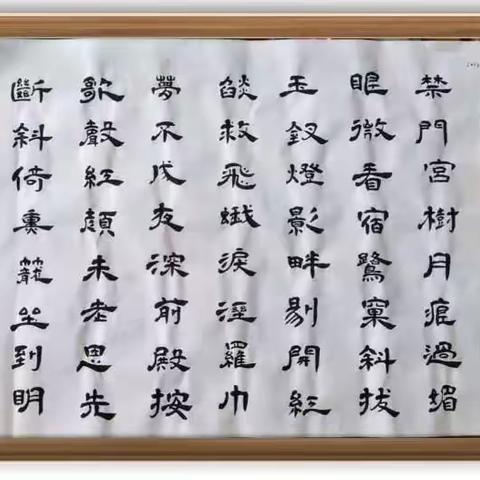 禁門宮樹月痕過媚
眼微看宿鷺窠斜拔
玉釵燈影畔剔開紅
燄救飛蛾淚溼羅巾
夢不成夜深前殿按
歌聲紅顏未老恩先
斷斜倚熏籠坐到明